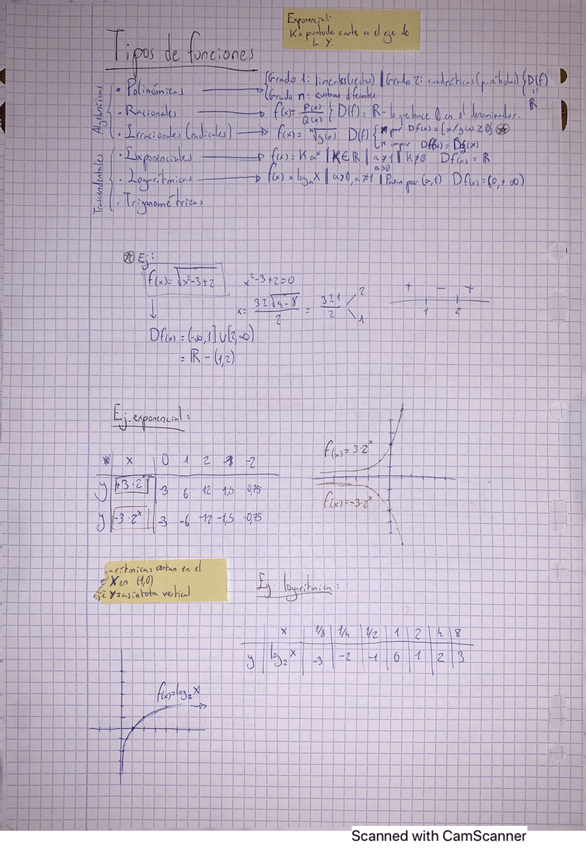 Exponencial:
K = punto de corte en el eje de
la Y.
Tipos de funciones
Algebraicas
· Polinómicas → Grado 1: lineales (rectas) | Grado 2: cuadráticas (parábolas) } D(f)
Grado n: curvas diferentes
= R
· Racionales → f(x) = P(x)/Q(x) } D(f) = R - lo que hace 0 en el denominador.
· Irracionales (radicales) → f(x) = ⁿ√g(x) D(f) { n par Df(x) = {x/g(x) ≥ 0} ⊛
n impar Df(x) = Dg(x)
Trascendentales
· Exponenciales → f(x) = K aˣ | K ∈ R | a ≠ 1 | K ≠ 0 Df(x) = R
a>0
· Logarítmicas → f(x) = logₐ X | a>0, a≠1 | Pasan por (a, 1) Df(x) = (0, +∞)
· Trigonométricas
⊛ Ej:
f(x) = √x²-3x+2 x²-3x+2=0
x = 3±√9-8 / 2 = 3±1 / 2 2 1
+ - +
1 2
↓
Df(x) = (-∞, 1] U [2, ∞)
= R - (1,2)
Ej. exponencial:
x 0 1 2 -1 -2
y +3·2ˣ 3 6 12 1,5 0,75
y -3·2ˣ -3 -6 -12 -1,5 -0,75
f(x) = 3·2ˣ
f(x) = -3·2ˣ
cortan en el
X en (1,0)
eje Y = asíntota vertical
Ej. logarítmica:
x 1/8 1/4 1/2 1 2 4 8
y log₂ X -3 -2 -1 0 1 2 3
f(x) = log₂ X
Scanned with CamScanner